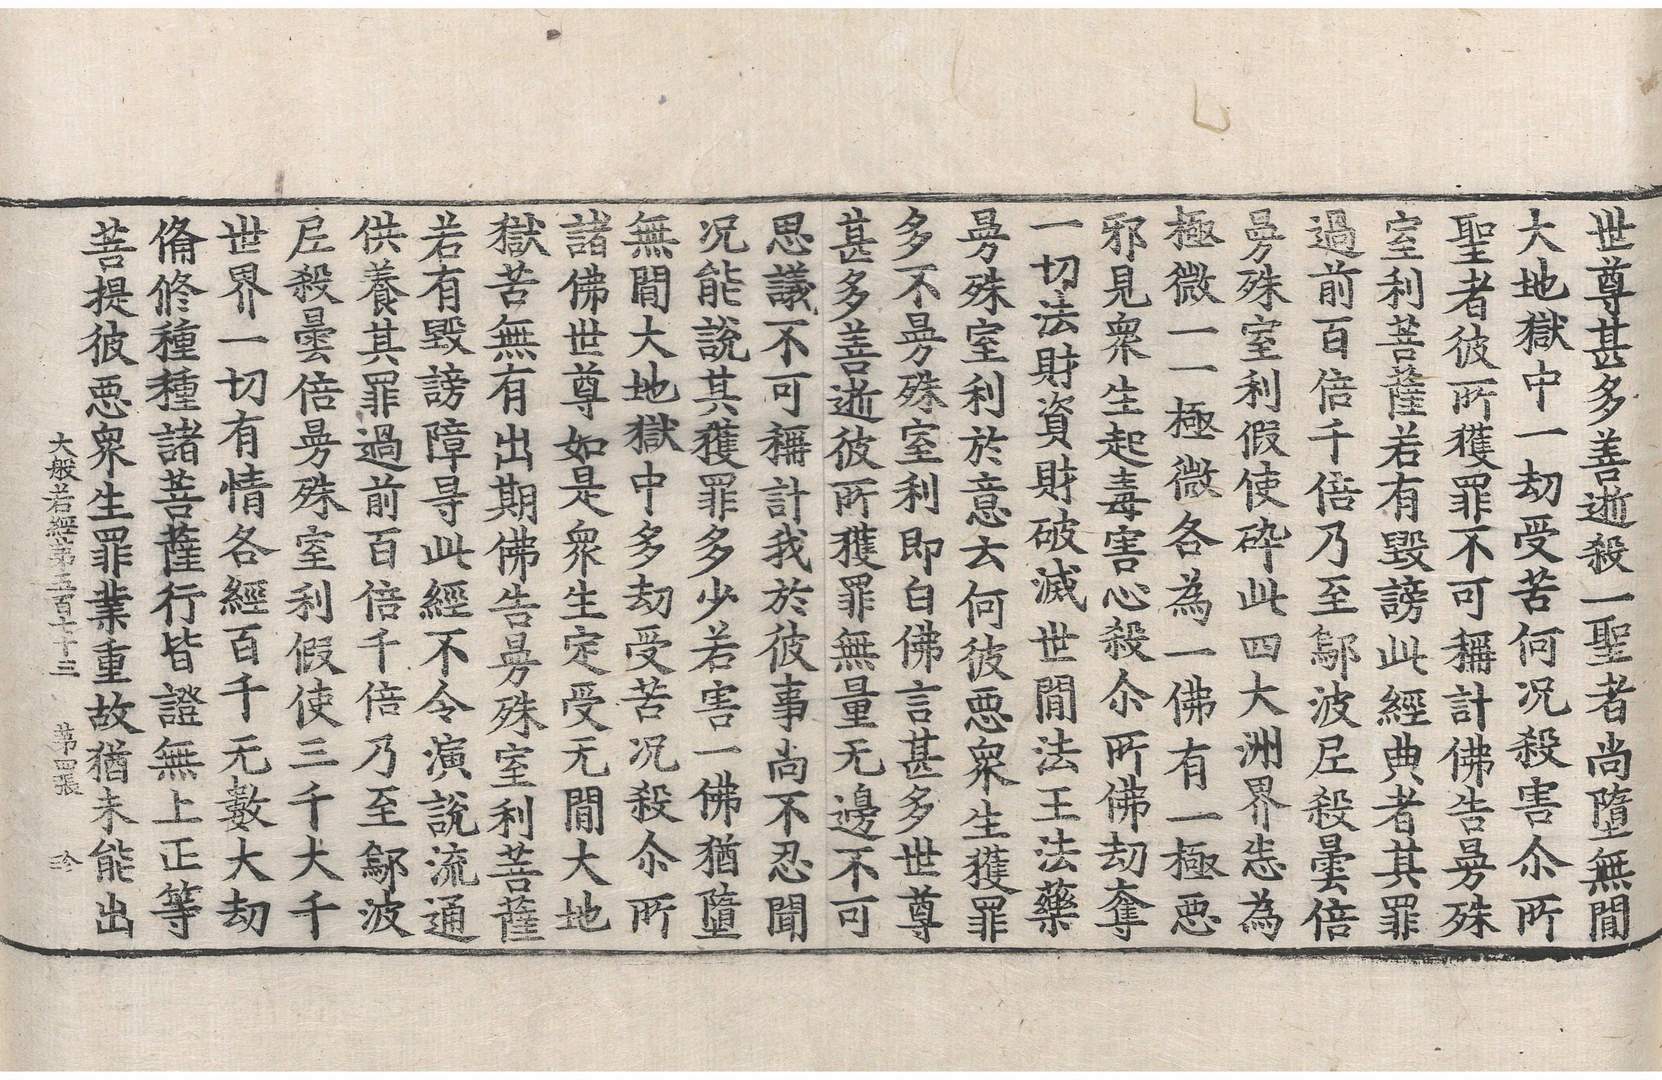 世尊甚多善逝殺一聖者尚墮無間
大地獄中一劫受苦何况殺害尒所
聖者彼所獲罪不可稱計佛告曼殊
室利菩薩若有毀謗此經典者其罪
過前百倍千倍乃至鄔波尼殺曇倍
曼殊室利假使碎此四大洲界悉為
極微一一極微各為一佛有一極惡
邪見衆生起毒害心殺尒所佛劫奪
一切法財資財破滅世間法王法藥
曼殊室利於意云何彼惡衆生獲罪
多不曼殊室利即白佛言甚多世尊
甚多善逝彼所獲罪無量无邊不可
思議不可稱計我於彼事尚不忍聞
况能說其獲罪多少若害一佛猶墮
無間大地獄中多劫受苦况殺尒所
諸佛世尊如是衆生定受无間大地
獄苦無有出期佛告曼殊室利菩薩
若有毀謗障㝵此經不令演說流通
供養其罪過前百倍千倍乃至鄔波
尼殺曇倍曼殊室利假使三千大千
世界一切有情各經百千无數大劫
俻修種種諸菩薩行皆證無上正等
菩提彼惡衆生罪業重故猶未能出
大般若經第五百七十三 第四張 珍